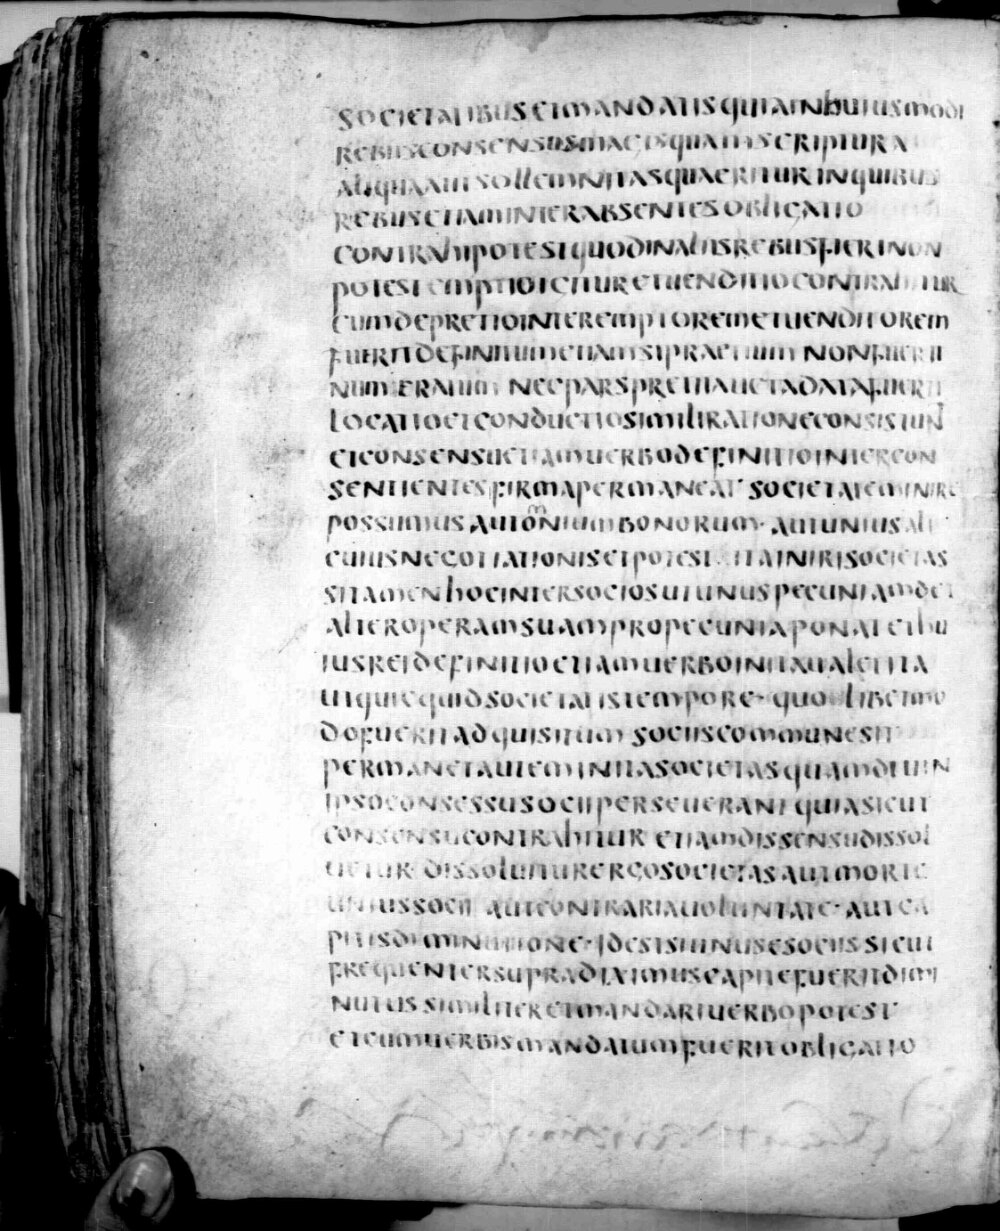 SOCIETATIBUS ET MANDATIS QUIA IN HUIUSMODI
REBUS CONSENSUS MAGIS QUAM SCRIPTURA
ALIQUA AUT SOLLEMNITAS QUAERITUR IN QUIBUS
REBUS ETIAM INTER ABSENTES OBLIGATIO
CONTRAHI POTEST QUOD IN ALIIS REBUS FIERI NON
POTEST EMPTIO IGITUR ET UENDITIO CONTRAHITUR
CUM DE PRETIO INTER EMPTOREM ET UENDITOREM
FUERIT DEFINITUM ETIAM SI PRAETIUM NON FUERIT
NUMERATUM NEC PARS PRETII AUT ADATA FUERIT
LOCATIO ET CONDUCTIO SIMILI RATIONE CONSISTUNT
ET CONSENSU ETIAM UERBO DEFINITIO INTER CON
SENTIENTES FIRMA PERMANEAT SOCIETATEM INIRE
POSSUMUS AUT OMNIUM BONORUM· AUT UNIUS ALI
CUIUS NEGOTIATIONIS ET POTEST ITA INIRI SOCIETAS
SI TAMEN HOC INTER SOCIOS UT UNUS PECUNIAM DET
ALTER OPERAM SUAM PRO PECUNIA PONAT ET HU
IUS REI DEFINITIO ETIAM UERBO INITA UALET ITA
UT QUICQUID SOCIETATIS TEMPORE· QUOLIBET MO
DO FUERIT ADQUISITUM SOCIIS COMMUNE SIT
PERMANET AUTEM INITA SOCIETAS QUAMDIU IN
IPSO CONSESSU SOCII PERSEUERANT QUIA SICUT
CONSENSU CONTRAHITUR ETIAM DISSENSU DISSOL
UETUR DISSOLUITUR ERGO SOCIETAS AUT MORTE
UNIUS SOCII AUT CONTRARIA UOLUNTATE· AUT CA
PITIS DIMINUTIONE· ID EST SI UNUS E SOCIIS SICUT
FREQUENTER SUPRA DIXIMUS CAPITE FUERIT DIMI
NUTUS SIMILITER ET MANDARI UERBO POTEST
ET CUM UERBIS MANDATUM FUERIT OBLIGATIO